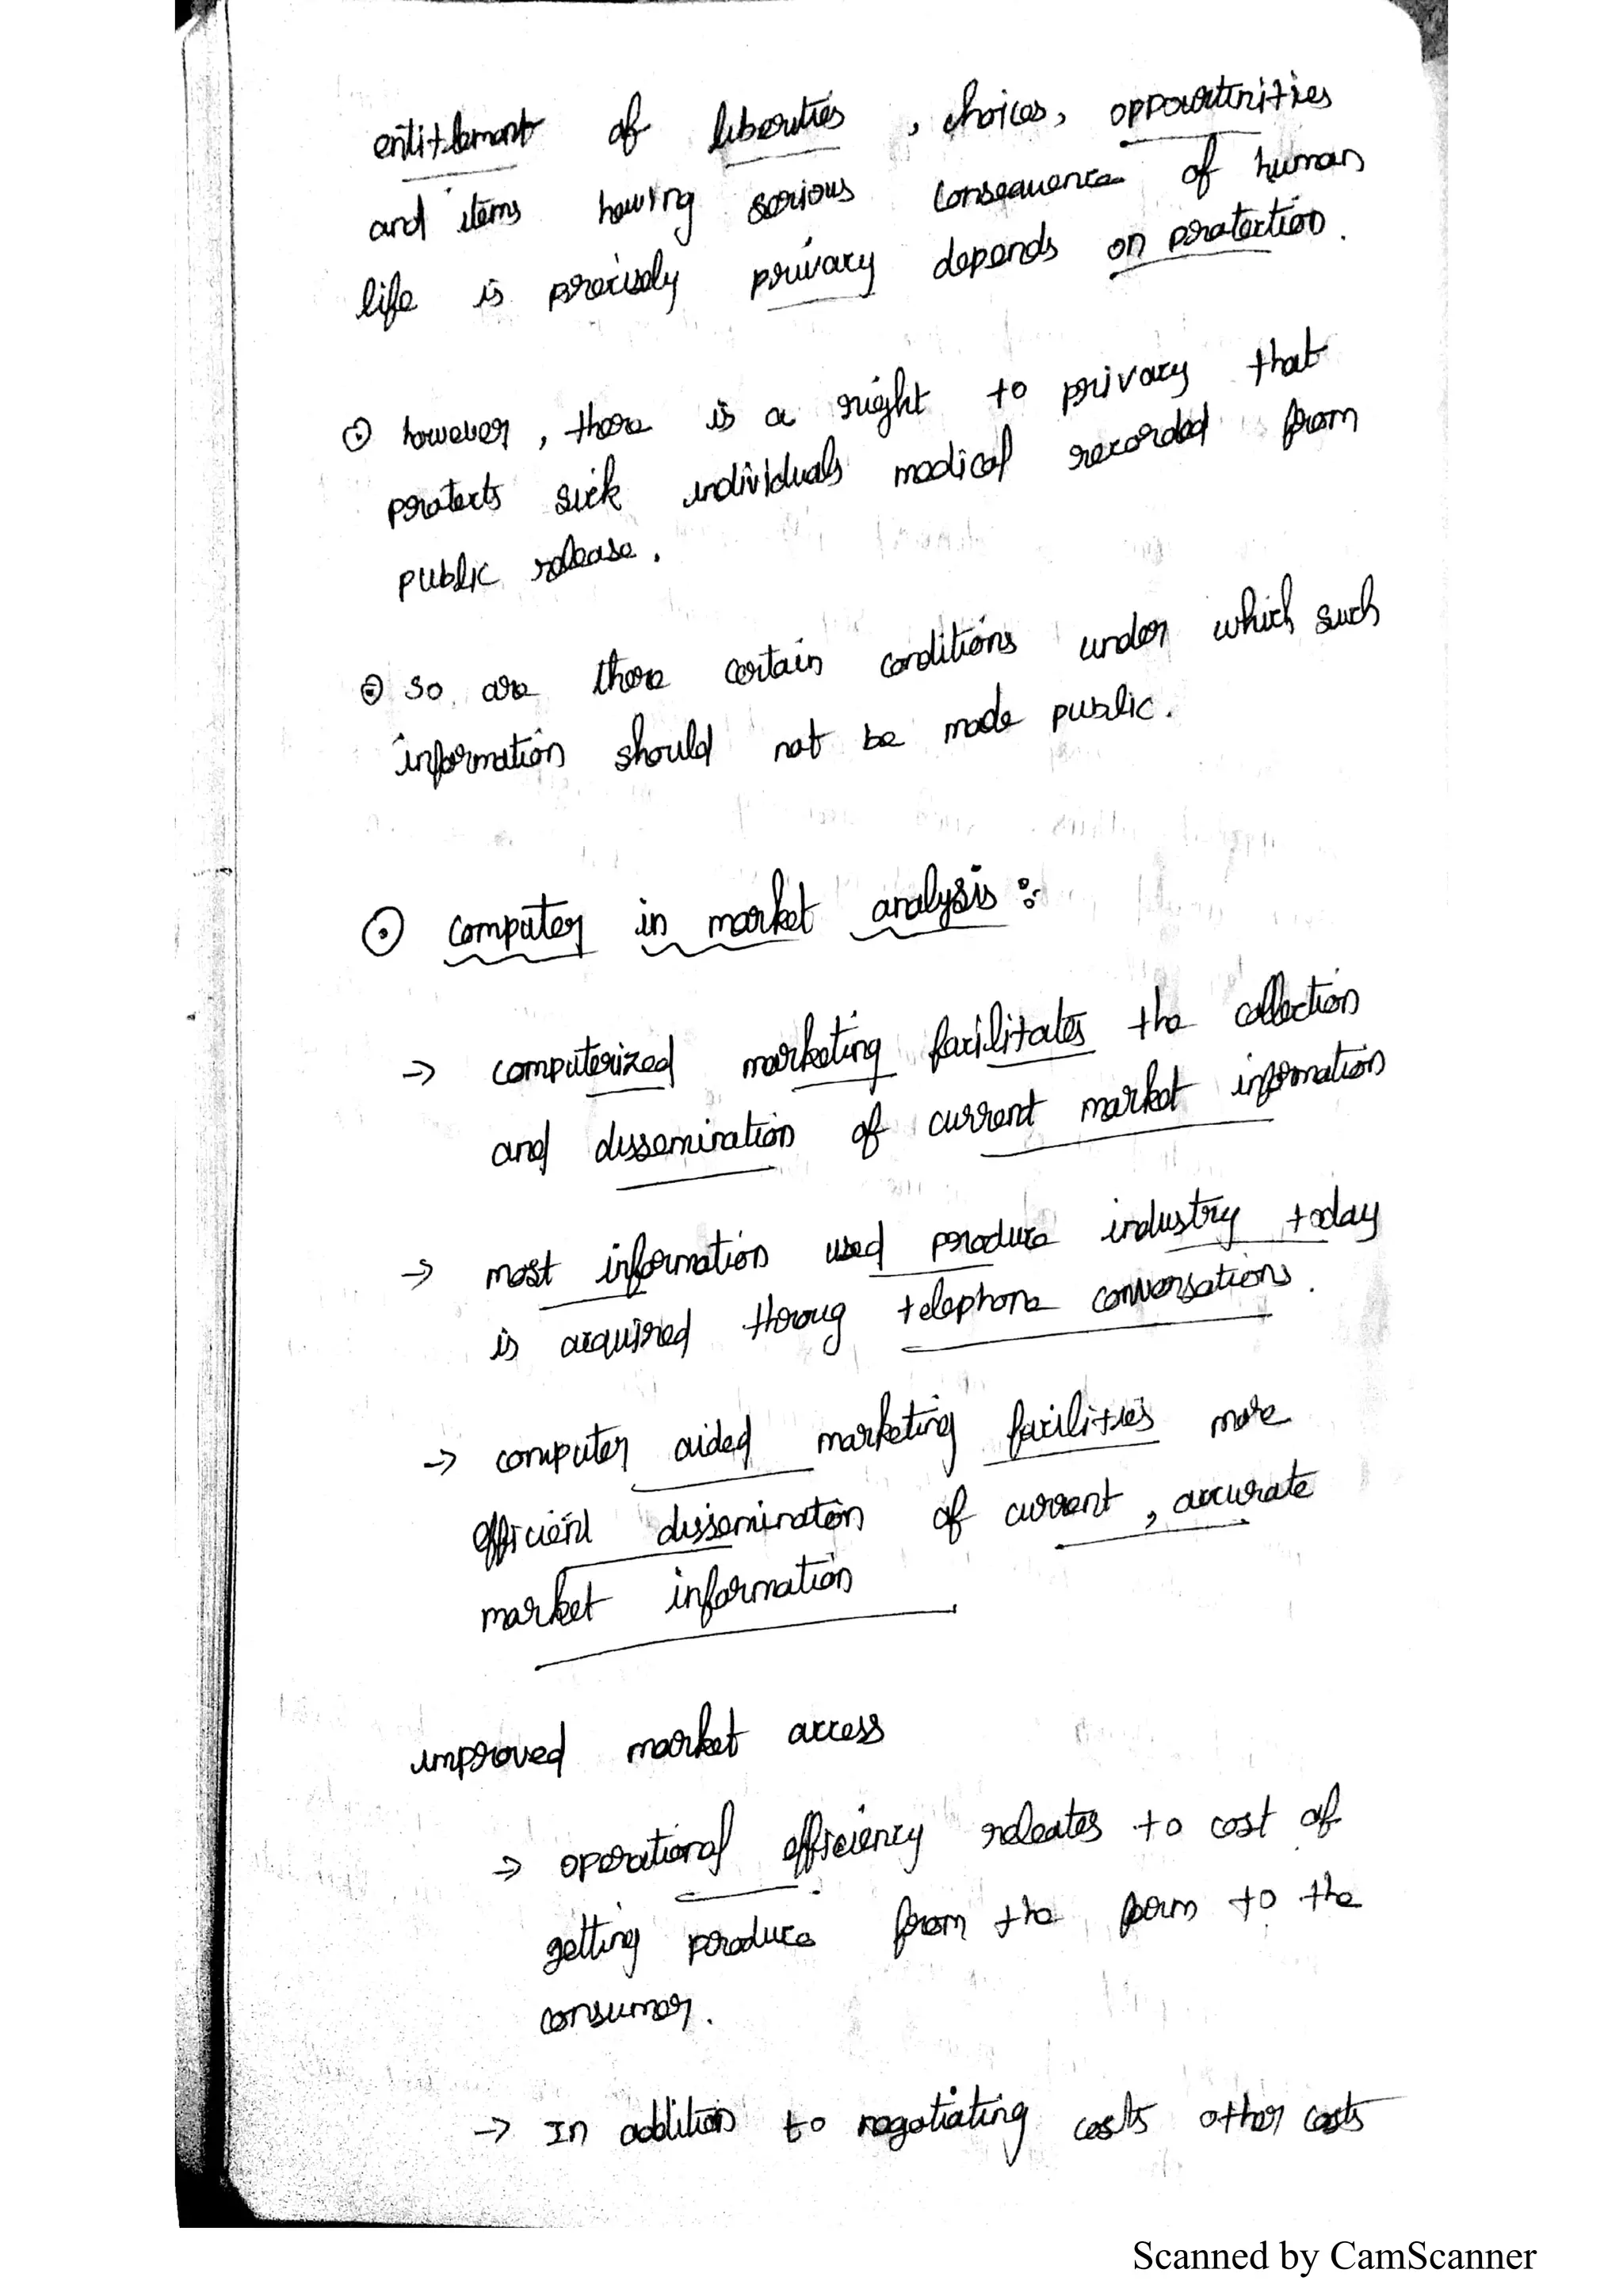 entitlement of liberties, choices, opportunities
and items having serious consequence of human
life is precisely privacy depends on protection.
however, there is a right to privacy that
protects sick individuals medical recorded from
public release.
so are there certain conditions under which such
information should not be made public.
computer in market analysis:
→ computerized marketing facilitates the collection
and dissemination of current market information
→ most information used produce industry today
is acquired throug telephone conversations.
→ computer aided marketing facilities more
efficient dissemination of current, accurate
market information
improved market access
→ operational efficiency releates to cost of
getting produce from the farm to the
consumer.
→ In addition to negotiating costs other costs
Scanned by CamScanner